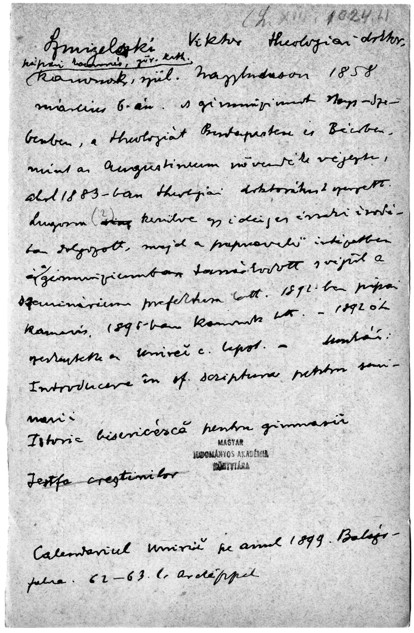 (Sz. XIII. 1024.l.)
Szmigelszki Viktor theologiai doktor,
pápai kamarás, gör. kath.
kanonok, szül. Nagyludason 1858
március 6-án. A gimnáziumot Nagysze-
benben, a theologiát Budapesten és Bécsben,
mint az Augustineum növendéke végezte,
ahol 1883-ban theologiai doktorátust szerzett.
Lugosra (?) kerülve egy ideig az érseki irodá-
ban dolgozott, majd a papnevelő intézetben
és gimnáziumban tanárkodott s végül a
szeminárium prefektusa lett. 1892-ben pápai
kamarás, 1895-ban kanonok lett. – 1892 óta
szerkesztette a Unirea c. lapot. – Munkái:
Introducere în sf. scriptura pentru semi-
narii
Istoria bisericéscă pentru gimnasii
Jertfa creștinilor
MAGYAR
TUDOMÁNYOS AKADÉMIA
KÖNYVTÁRA
Calendariul Unirei pe anul 1899. Balázs-
falva. 62–63. l. arcképpel